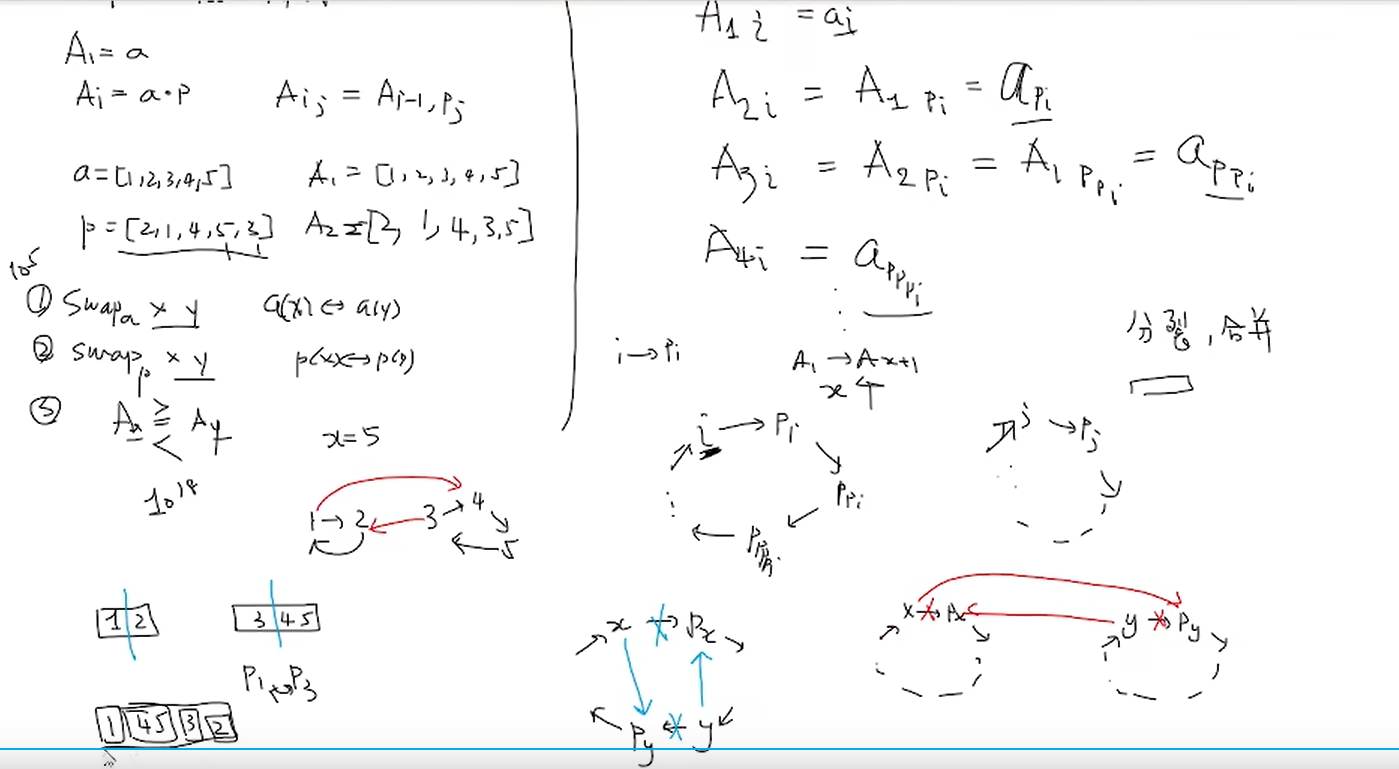 A₁ = a
Aᵢ = a·p   Aᵢⱼ = Aᵢ₋₁,pⱼ
a = [1,2,3,4,5]   A₁ = [1,2,3,4,5]
p = [2,1,4,5,3]   A₂ = [2,1,4,3,5]
10⁵
① swapₐ x y   a(x) ↔ a(y)
② swapₚ x y   p(x) ↔ p(y)
③ Aₓ ≥ = < A_y
x=5
10¹⁸
1 → 2   3 → 4
5
1 2   3 4 5
P₁ ↔ P₃
1 45 3 2
A₁ᵢ = aᵢ
A₂ᵢ = A₁ pᵢ = a pᵢ
A₃ᵢ = A₂ pᵢ = A₁ p pᵢ = a p pᵢ
A₄ᵢ = a p p pᵢ
i → Pᵢ
A₁ → Aₓ₊₁
x
分裂,合并
i → Pᵢ   j → Pⱼ
P Pᵢ
P P Pᵢ
x → Pₓ   x → Pₓ   y → P_y
P_y ← y